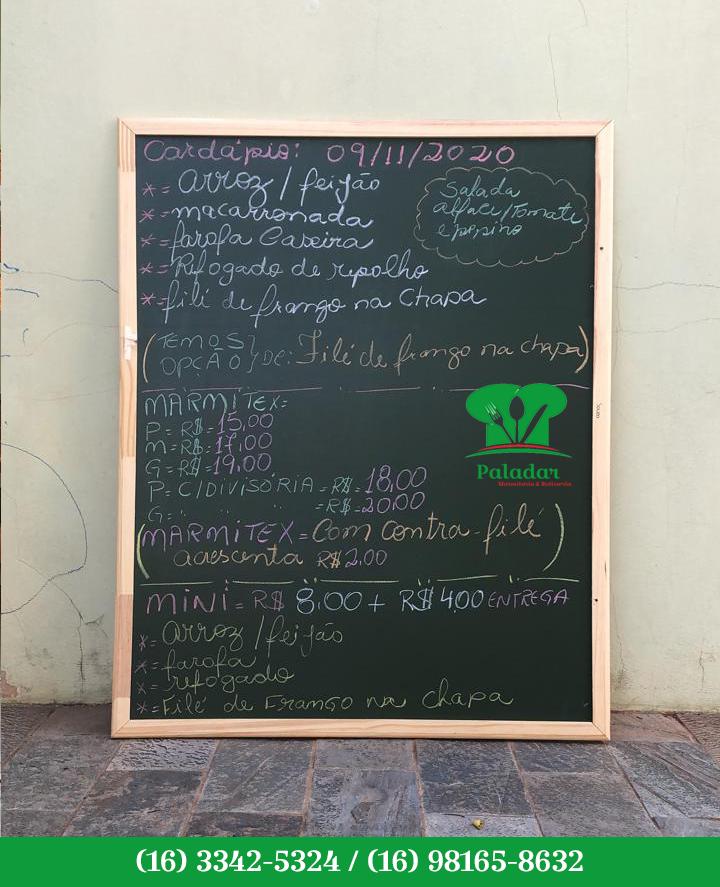 Cardápio: 09/11/2020
*= arroz/feijão
*= macarronada
*= farofa Caseira
*= Refogado de repolho
*= filé de frango na Chapa
Salada
alface/Tomate
e pepino
(TEMOS }
OPÇÃO } DE: Filé de frango na chapa)
MARMITEX=
P= R$=15,00
M= R$=17,00
G= R$=19,00
P= C/DIVISÓRIA = R$= 18,00
G= " " = R$= 20,00
(MARMITEX = Com contra-filé
acrescenta R$ 2,00)
MINI = R$ 8,00 + R$ 4,00 ENTREGA
*= arroz/feijão
*= farofa
*= refogado
*= Filé de Frango na chapa
Paladar
Marmitaria & Rotisseria
Souza
(16) 3342-5324 / (16) 98165-8632